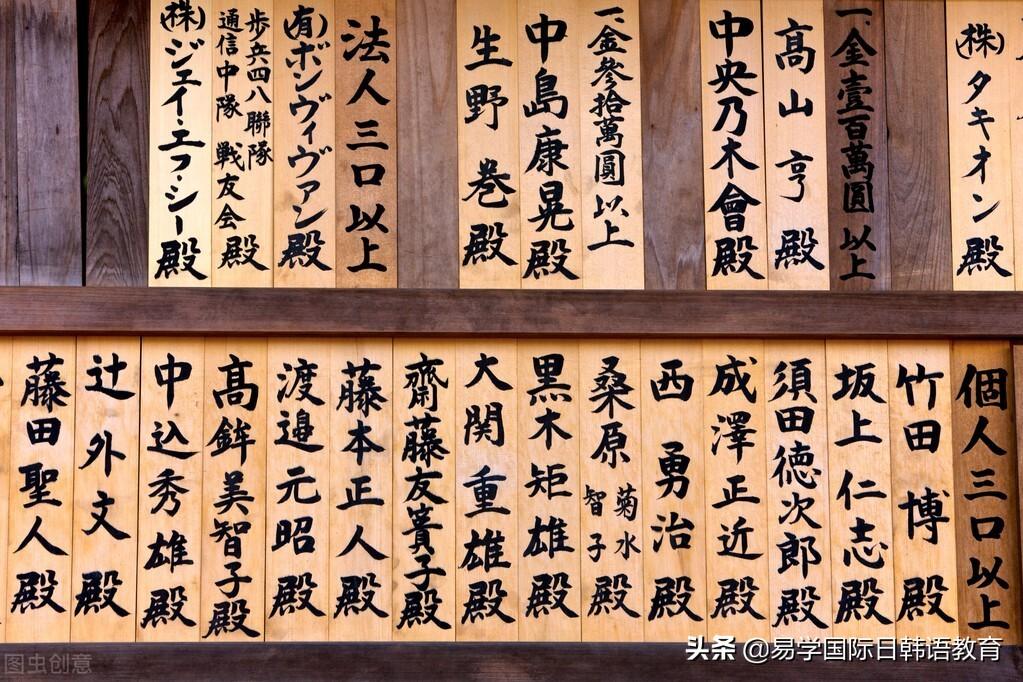 (株)タキオン殿
一、金壹百萬圓以上
髙山亨殿
中央乃木會殿
一、金參拾萬圓以上
中島康晃殿
生野巻殿
法人三口以上
(有)ボンヴィヴァン殿
歩兵四八聯隊
通信中隊 戦友会殿
(株)ジェイ・エフ・シー殿
個人三口以上
竹田博殿
坂上仁志殿
須田徳次郎殿
成澤正近殿
西勇治殿
桑原 菊水
智子殿
黒木矩雄殿
大関重雄殿
齋藤友賓子殿
藤本正人殿
渡邉元昭殿
髙鉾美智子殿
中込秀雄殿
辻外文殿
藤田聖人殿
头条 @易学国际日韩语教育
图虫创意